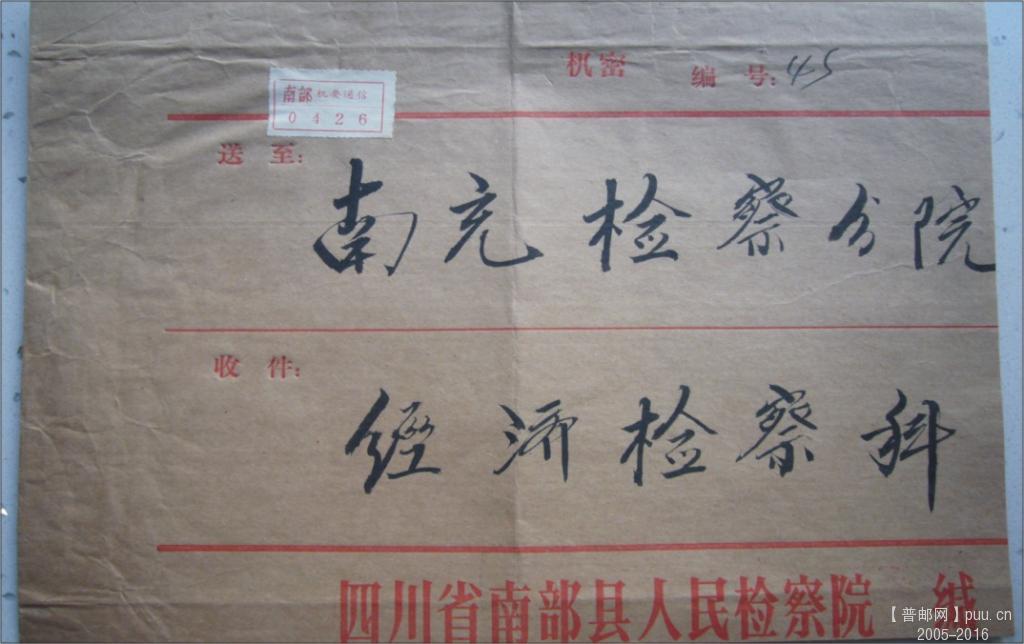 机密 编号:45
南部机要通信
0426
送至:
南充检察分院
收件:
经济检察科
四川省南部县人民检察院 缄
【普邮网】puu.cn
2005-2016